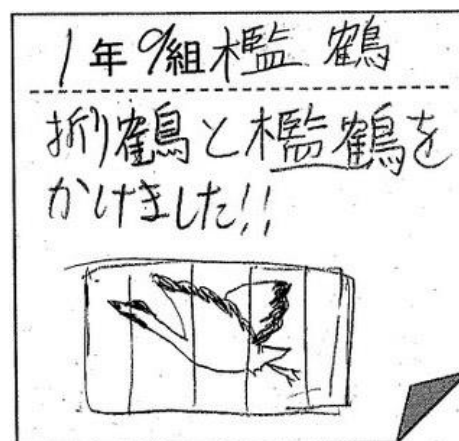 1年9組檻 鶴
折り鶴と檻鶴を
かけました!!